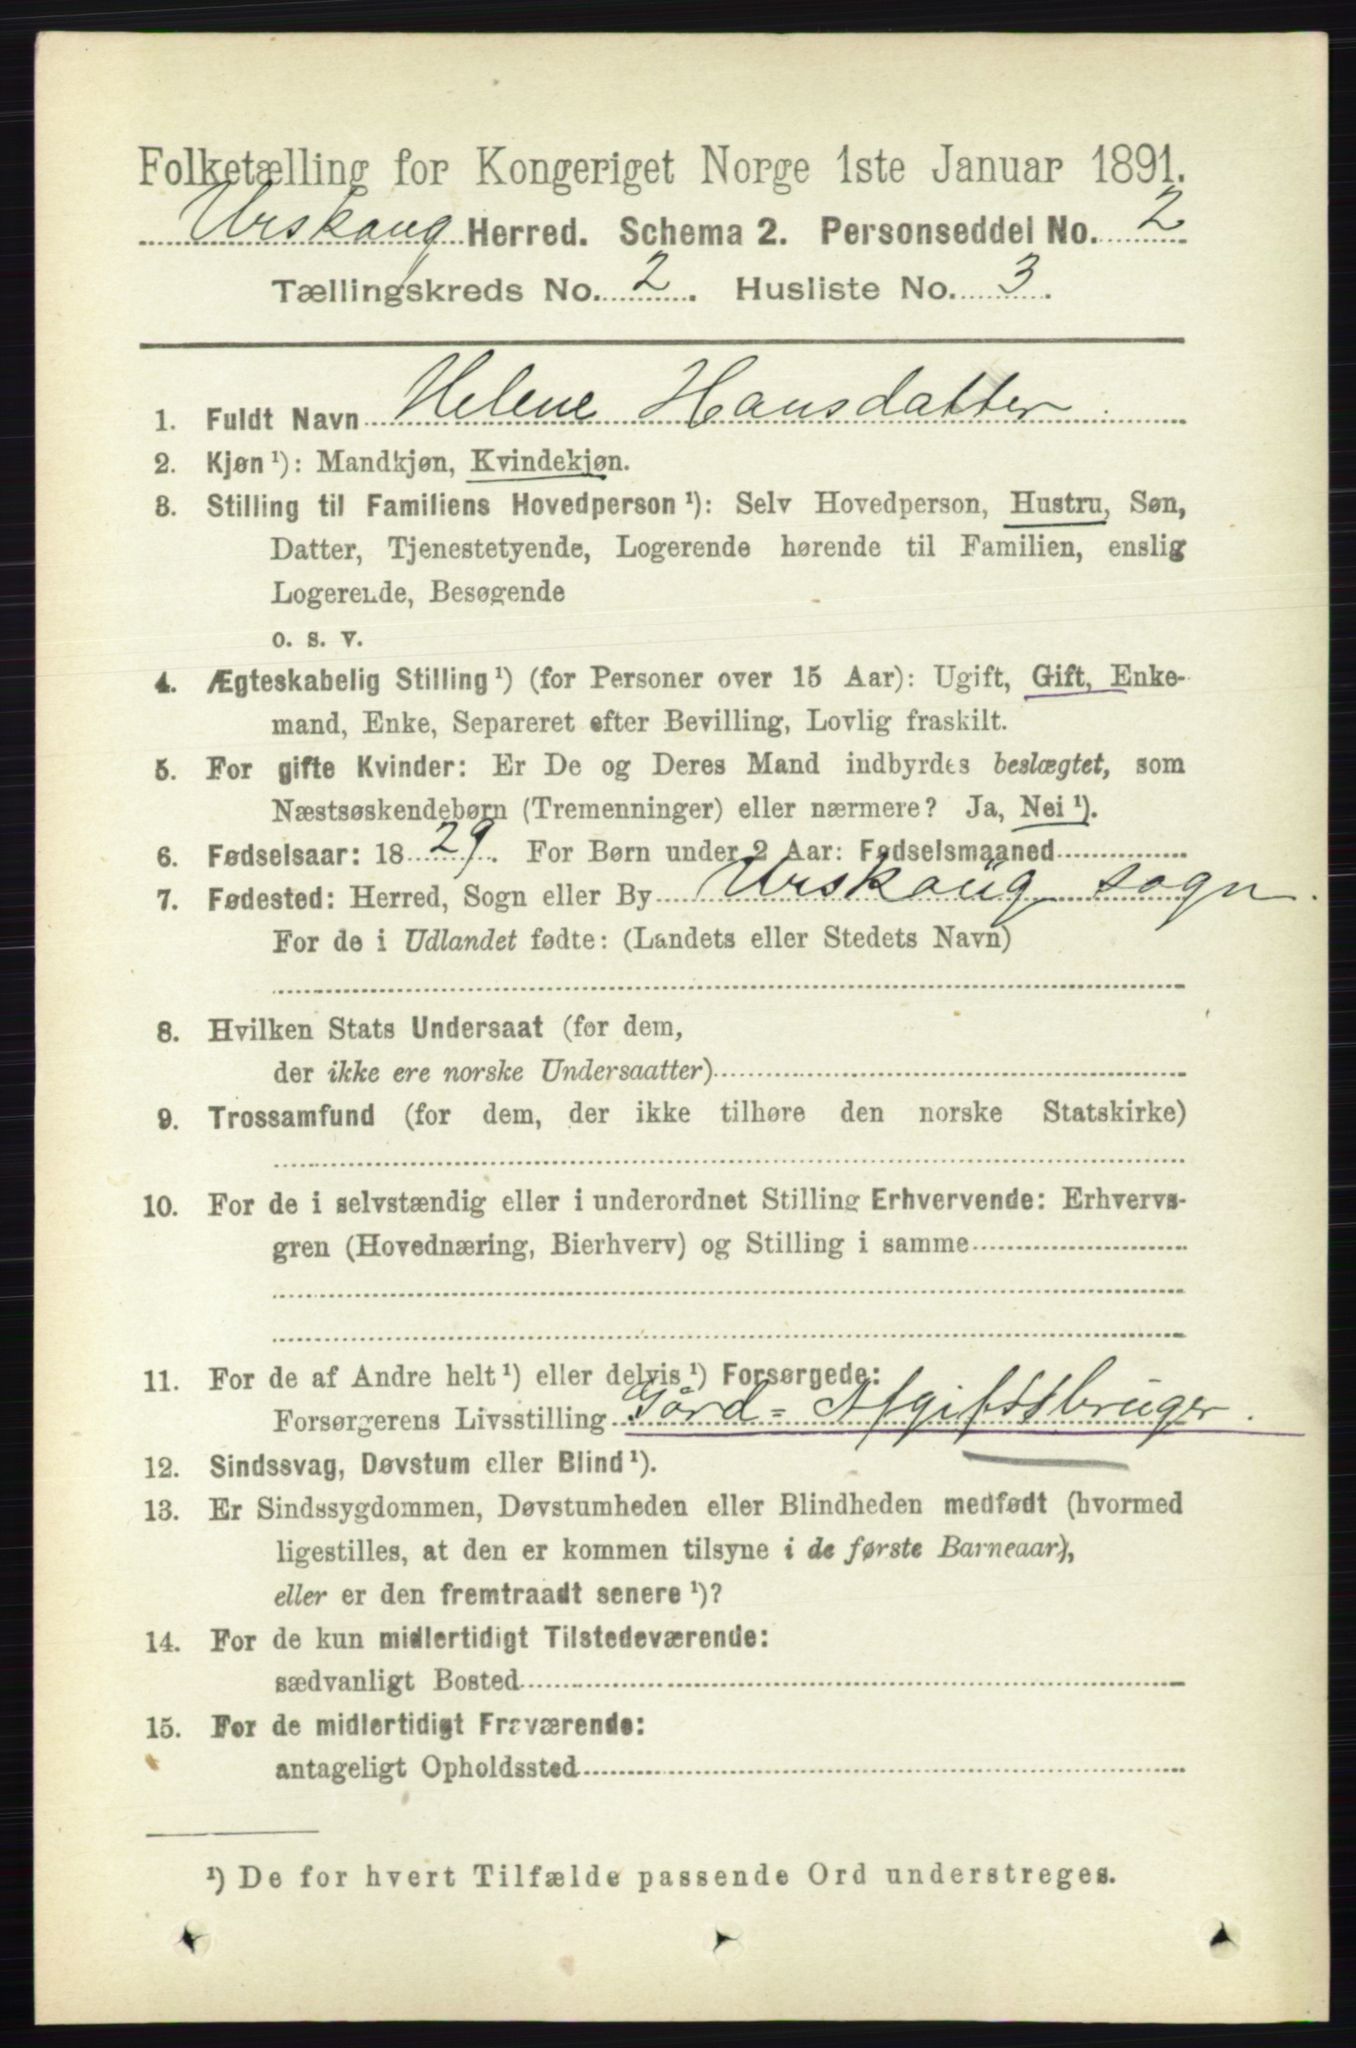 Folketælling for Kongeriget Norge 1ste Januar 1891.
Urskoug Herred. Schema 2. Personseddel No. 2
Tællingskreds No. 2. Husliste No. 3.
1. Fuldt Navn Helene Hansdatter.
2. Kjøn ¹): Mandkjøn, Kvindekjøn.
3. Stilling til Familiens Hovedperson ¹): Selv Hovedperson, Hustru, Søn,
Datter, Tjenestetyende, Logerende hørende til Familien, enslig
Logerende, Besøgende
o. s. v.
4. Ægteskabelig Stilling ¹) (for Personer over 15 Aar): Ugift, Gift, Enke-
mand, Enke, Separeret efter Bevilling, Lovlig fraskilt.
5. For gifte Kvinder: Er De og Deres Mand indbyrdes beslægtet, som
Næstsøskendebørn (Tremenninger) eller nærmere? Ja, Nei ¹).
6. Fødselsaar: 1829. For Børn under 2 Aar: Fødselsmaaned
7. Fødested: Herred, Sogn eller By Urskoüg sogn.
For de i Udlandet fødte: (Landets eller Stedets Navn)
8. Hvilken Stats Undersaat (for dem,
der ikke ere norske Undersaatter)
9. Trossamfund (for dem, der ikke tilhøre den norske Statskirke)
10. For de i selvstændig eller i underordnet Stilling Erhvervende: Erhvervs-
gren (Hovednæring, Bierhverv) og Stilling i samme
11. For de af Andre helt ¹) eller delvis ¹) Forsørgede:
Forsørgerens Livsstilling Gård-Afgiftsbrüger.
12. Sindssvag, Døvstum eller Blind ¹).
13. Er Sindssygdommen, Døvstumheden eller Blindheden medfødt (hvormed
ligestilles, at den er kommen tilsyne i de første Barneaar),
eller er den fremtraadt senere ¹)?
14. For de kun midlertidigt Tilstedeværende:
sædvanligt Bosted
15. For de midlertidigt Fraværende:
antageligt Opholdssted
¹) De for hvert Tilfælde passende Ord understreges.